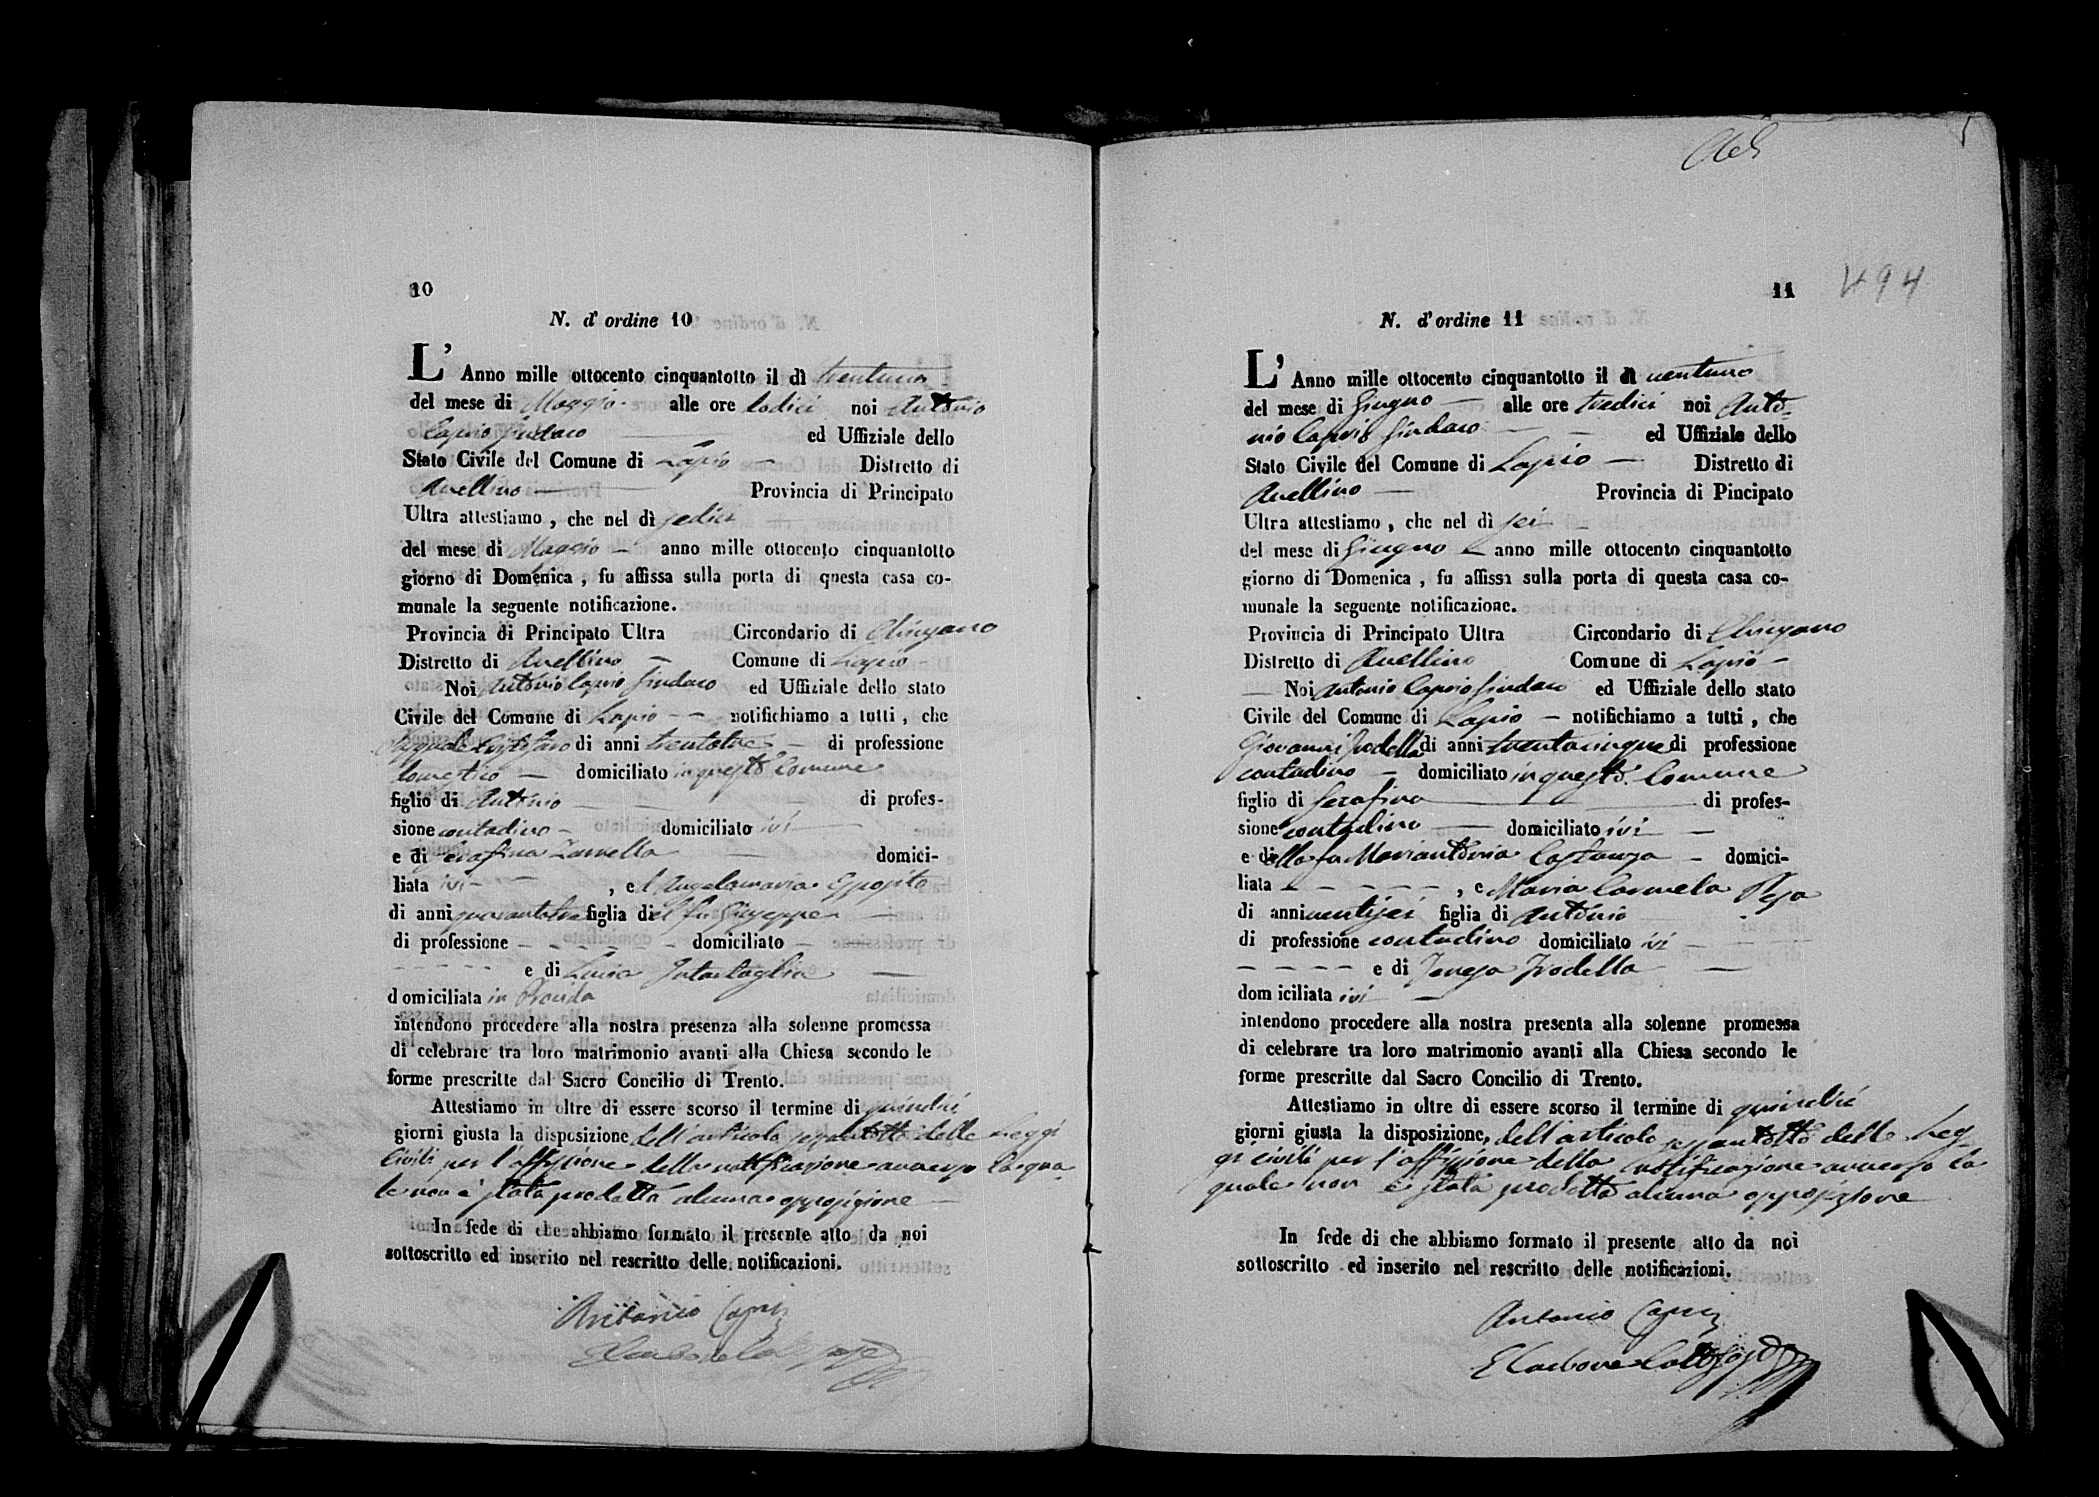 10
N. d' ordine 10
L' Anno mille ottocento cinquantotto il dì trentuno
del mese di Maggio alle ore dodici noi Antonio
Caprio Sindaco ed Uffiziale dello
Stato Civile del Comune di Lapio Distretto di
Avellino Provincia di Principato
Ultra attestiamo, che nel dì sedici
del mese di Maggio anno mille ottocento cinquantotto
giorno di Domenica, fu affissa sulla porta di questa casa co-
munale la seguente notificazione.
Provincia di Principato Ultra Circondario di
Distretto di Avellino Comune di Lapio
Noi Antonio Caprio Sindaco ed Uffiziale dello stato
Civile del Comune di Lapio notifichiamo a tutti, che
Pasquale di anni trentotto di professione
domestico domiciliato in questo Comune
figlio di Antonio di profes-
sione contadino domiciliato ivi
e di Serafina domici-
liata ivi , e Angelamaria Esposito
di anni figlia di fu Giuseppe
di professione - - - - - domiciliato -
- - - - - e di Luisa Intartaglia
domiciliata in Procida
intendono procedere alla nostra presenza alla solenne promessa
di celebrare tra loro matrimonio avanti alla Chiesa secondo le
forme prescritte dal Sacro Concilio di Trento.
Attestiamo in oltre di essere scorso il termine di quindici
giorni giusta la disposizione dell'articolo sessantotto delle Leggi
Civili per l'affissione della notificazione avverso la qua
le non è stata prodotta alcuna opposizione
In fede di che abbiamo formato il presente atto da noi
sottoscritto ed inserito nel rescritto delle notificazioni.
Antonio Caprio
11
494
N. d' ordine 11
L' Anno mille ottocento cinquantotto il dì ventuno
del mese di Giugno alle ore tredici noi Anto-
nio Caprio Sindaco ed Uffiziale dello
Stato Civile del Comune di Lapio Distretto di
Avellino Provincia di Pincipato
Ultra attestiamo, che nel dì sei
del mese di Giugno anno mille ottocento cinquantotto
giorno di Domenica, fu affissa sulla porta di questa casa co-
munale la seguente notificazione.
Provincia di Principato Ultra Circondario di
Distretto di Avellino Comune di Lapio
Noi Antonio Caprio Sindaco ed Uffiziale dello stato
Civile del Comune di Lapio notifichiamo a tutti, che
Giovanni Trodella di anni trentacinque di professione
contadino domiciliato in questo Comune
figlio di Serafino di profes-
sione contadino domiciliato ivi
e della fu Mariantonia Costanza domici-
liata - - - - - , e Maria Carmela Pesa
di anni ventisei figlia di Antonio
di professione contadino domiciliato ivi
- - - - e di Teresa Trodella
dom iciliata ivi
intendono procedere alla nostra presenta alla solenne promessa
di celebrare tra loro matrimonio avanti alla Chiesa secondo le
forme prescritte dal Sacro Concilio di Trento.
Attestiamo in oltre di essere scorso il termine di quindici
giorni giusta la disposizione, dell'articolo sessantotto delle Leg-
gi civili per l'affissione della notificazione avverso la
quale non è stata prodotta alcuna opposizione
In fede di che abbiamo formato il presente atto da noi
sottoscritto ed inserito nel rescritto delle notificazioni.
Antonio Caprio